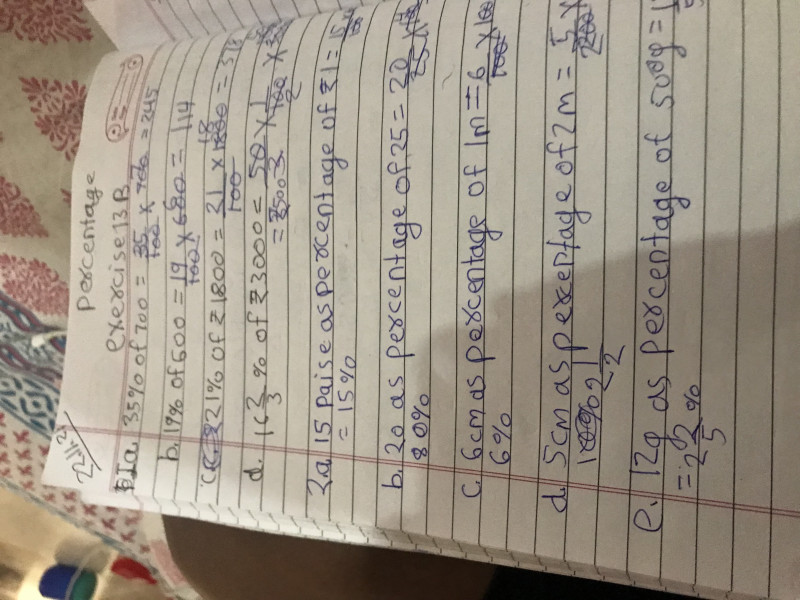 22/11/21
percentage
exercise 13 B
1a. 35% of 700 = 35/100 × 700 = 245
b. 19% of 600 = 19/100 × 600 = 114
c. 21% of ₹1800 = 21/100 × 1800 = 378
d. 16 2/3 % of ₹3000 = 50/3 × 1/100 ×
= ₹500
2a. 15 paise as percentage of ₹1 =
= 15%
b. 20 as percentage of 25 = 20/25 × 100
80%
c. 6cm as percentage of 1m = 6/100 × 100
6%
d. 5cm as percentage of 2m = 5/200 ×
2 1/2
e. 12g as percentage of 500g =
= 2 2/5 %